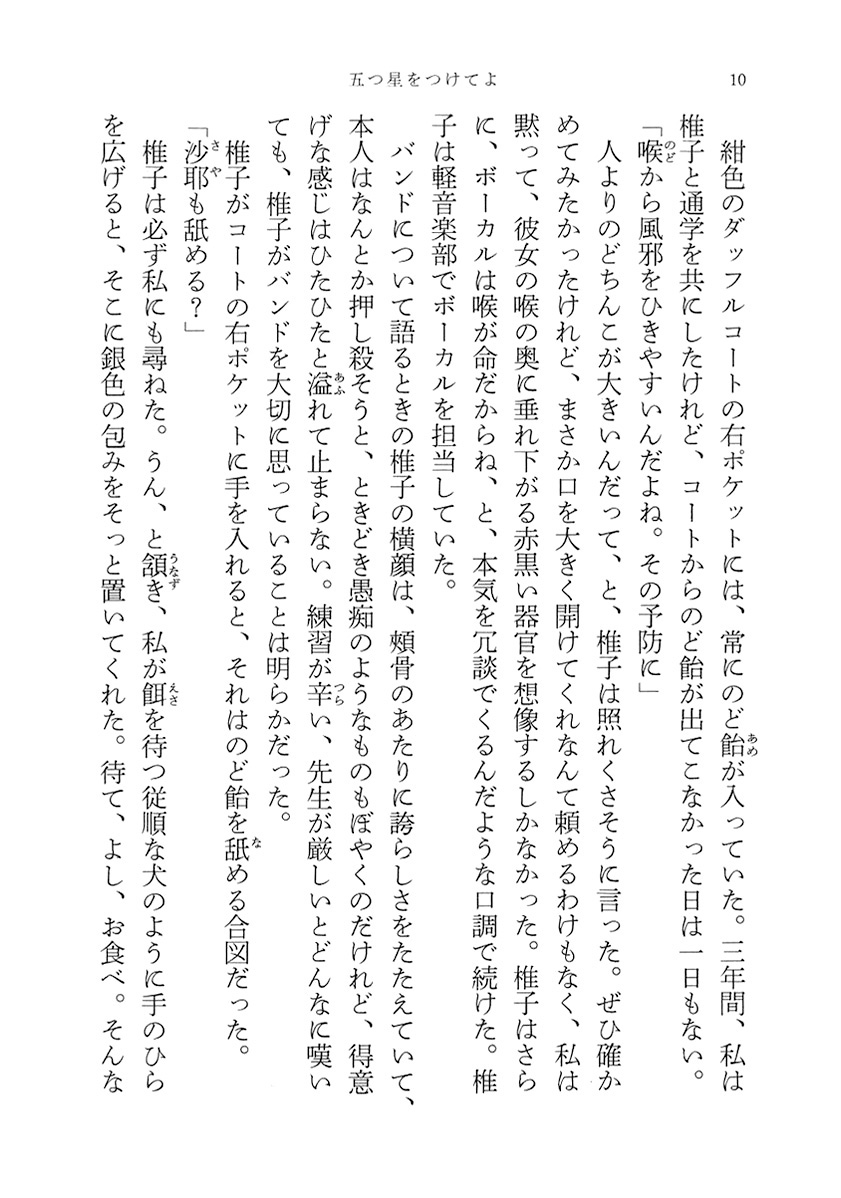 五つ星をつけてよ
10
紺色のダッフルコートの右ポケットには、常にのど飴が入っていた。三年間、私は
椎子と通学を共にしたけれど、コートからのど飴が出てこなかった日は一日もない。
「喉から風邪をひきやすいんだよね。その予防に」
人よりのどちんこが大きいんだって、と、椎子は照れくさそうに言った。ぜひ確か
めてみたかったけれど、まさか口を大きく開けてくれなんて頼めるわけもなく、私は
黙って、彼女の喉の奥に垂れ下がる赤黒い器官を想像するしかなかった。椎子はさら
に、ボーカルは喉が命だからね、と、本気を冗談でくるんだような口調で続けた。椎
子は軽音楽部でボーカルを担当していた。
バンドについて語るときの椎子の横顔は、頰骨のあたりに誇らしさをたたえていて、
本人はなんとか押し殺そうと、ときどき愚痴のようなものもぼやくのだけれど、得意
げな感じはひたひたと溢れて止まらない。練習が辛い、先生が厳しいとどんなに嘆い
ても、椎子がバンドを大切に思っていることは明らかだった。
椎子がコートの右ポケットに手を入れると、それはのど飴を舐める合図だった。
「沙耶も舐める？」
椎子は必ず私にも尋ねた。うん、と頷き、私が餌を待つ従順な犬のように手のひら
を広げると、そこに銀色の包みをそっと置いてくれた。待て、よし、お食べ。そんな